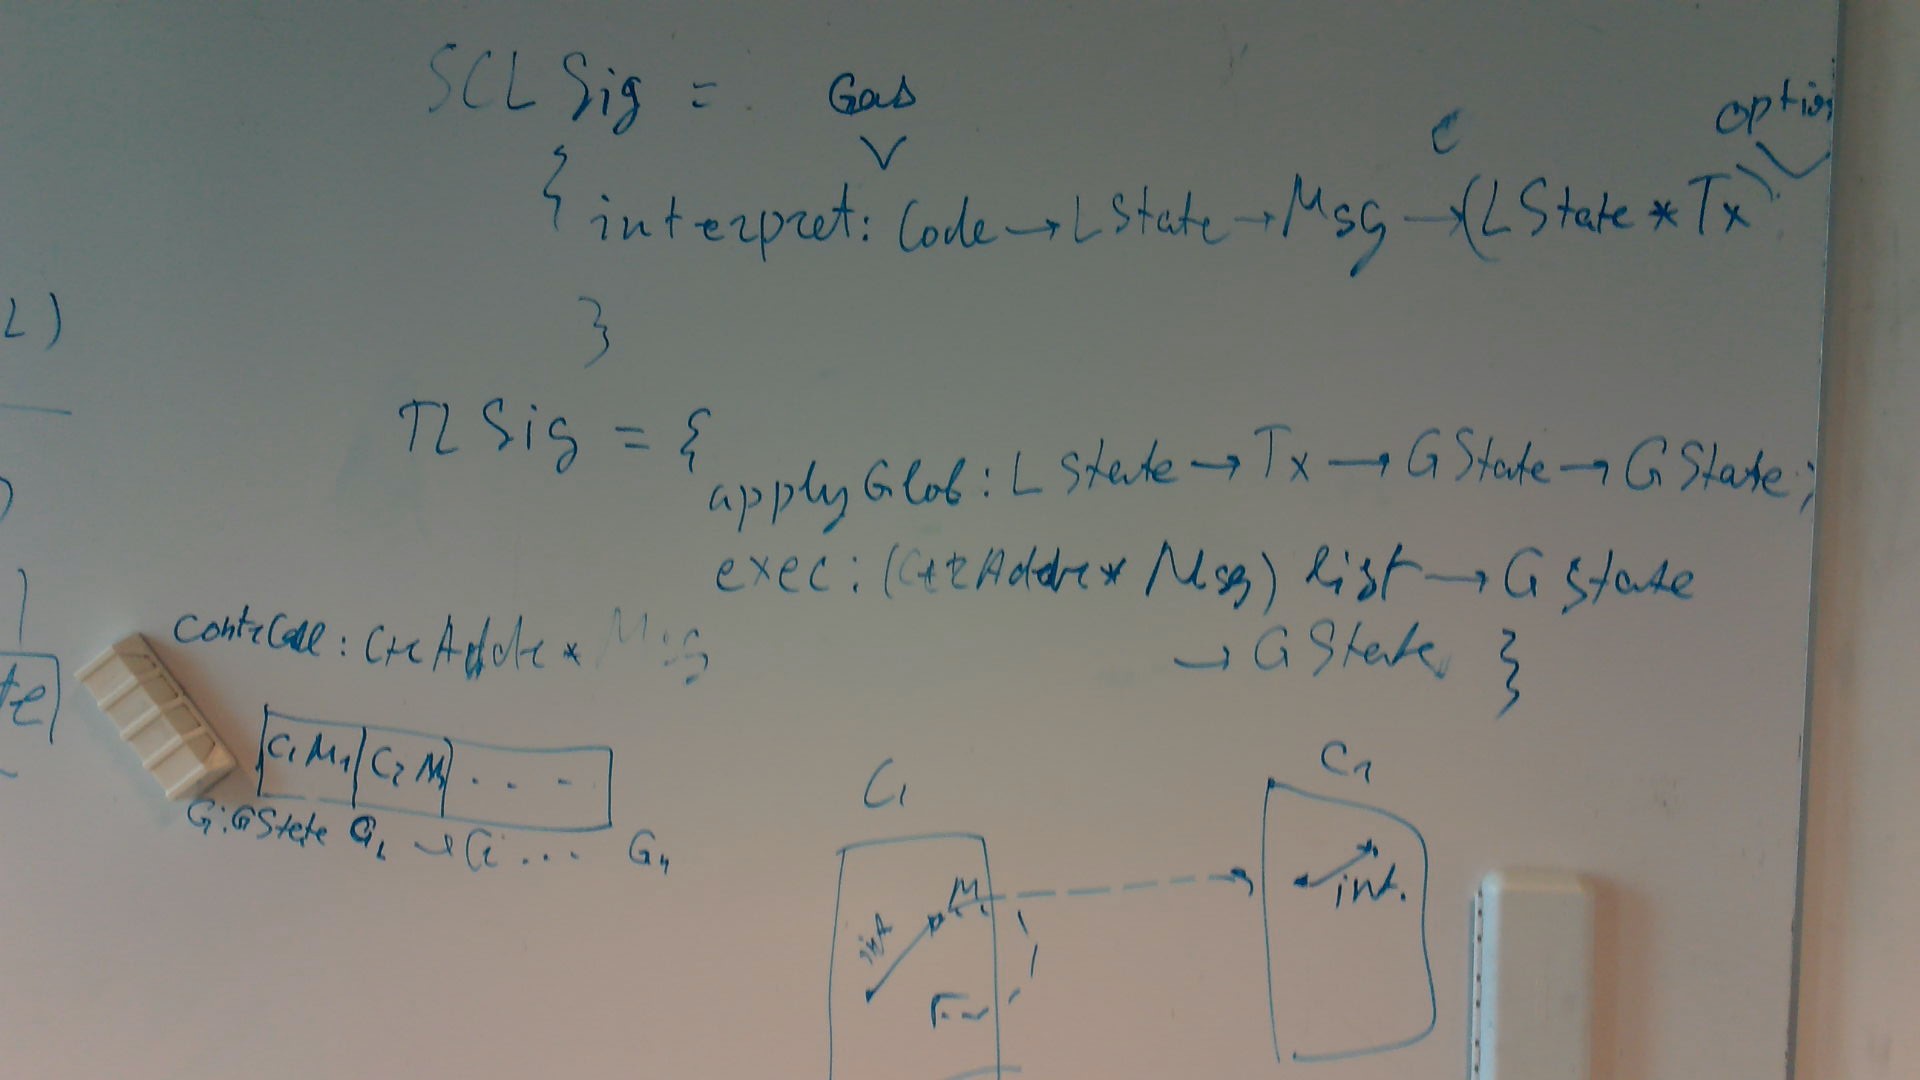 SCL Sig = Gas
V
C
option
{ interpret: Code → LState → Msg → (LState * Tx)
}
L)
TL Sig = {
applyGlob: LState → Tx → GState → GState;
exec: (CtrAddr * Msg) list → GState
→ GState }
contrCall: CtrAddr * Msg
te
C₁ M₁ C₂ M₂ . . . -
G:GState G₂ → G ... Gₙ
C₁
M
int
C₂
int.